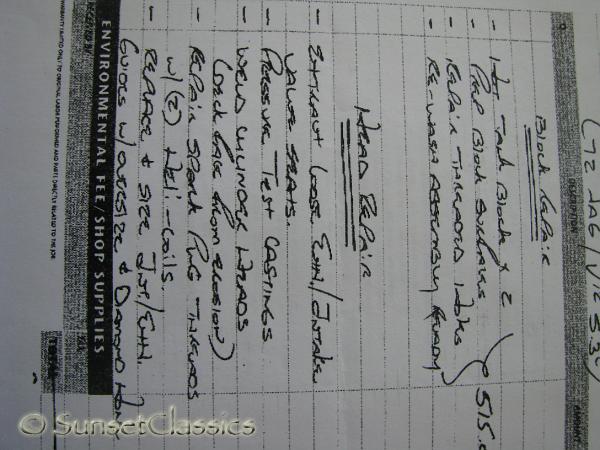 (72 JAG / V12 5.3L)
DESCRIPTION
AMOUNT
Block Repair
- Hot Tank Block x 2
- Prep Block Surfaces
- Repair Threaded Holes
- Re-wash Assembly Ready
515.
Head Repair
- Extract Loose Exh./Intake
Valve Seats.
- Pressure Test Castings
- Weld Cylinder Heads
(Deck Face from erosion)
- Repair Spark Plug Threads
w/(2) Heli-Coils
- Replace & Size Int/Exh.
Guides w/oversize & Diamond Hone
ENVIRONMENTAL FEE/SHOP SUPPLIES
TOTAL
RECEIVED BY
WARRANTY LIMITED ONLY TO ORIGINAL LABOR PERFORMED AND PARTS DIRECTLY RELATED TO THE JOB.
© SunsetClassics